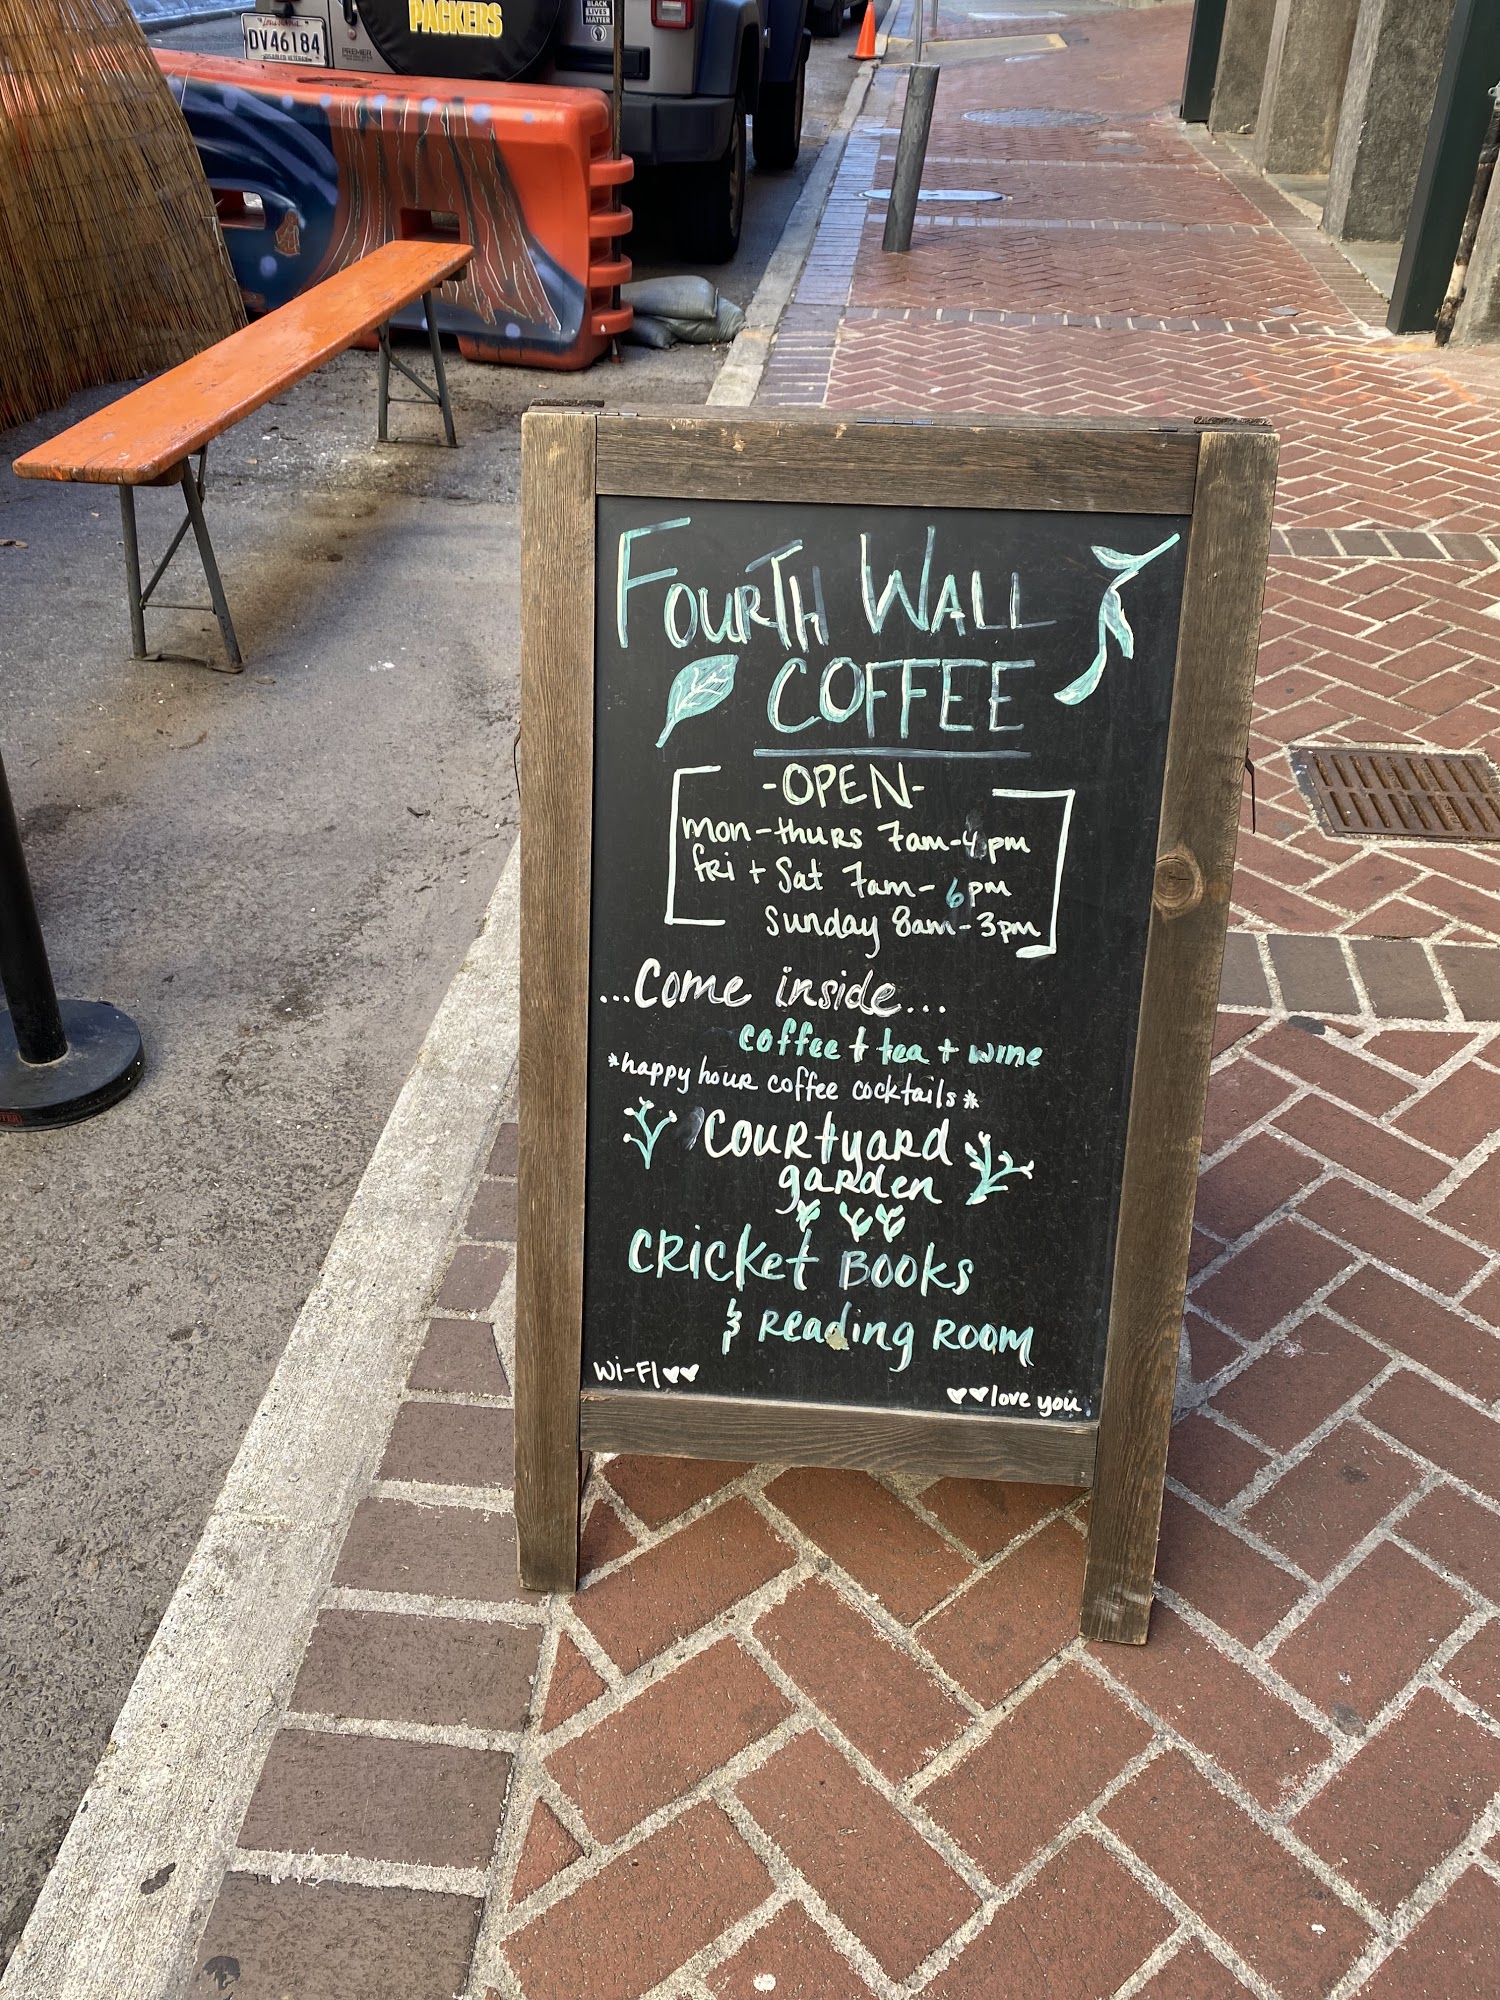 PACKERS
BLACK
LIVES
MATTER
Louisiana
DV46184
DISABLED VETERAN
PREMIER
FOURTH WALL
COFFEE
-OPEN-
mon-thurs 7am-4pm
fri + Sat 7am-6pm
Sunday 8am-3pm
...Come inside...
coffee + tea + wine
*happy hour coffee cocktails*
Courtyard
garden
Cricket Books
& Reading Room
Wi-Fi
love you